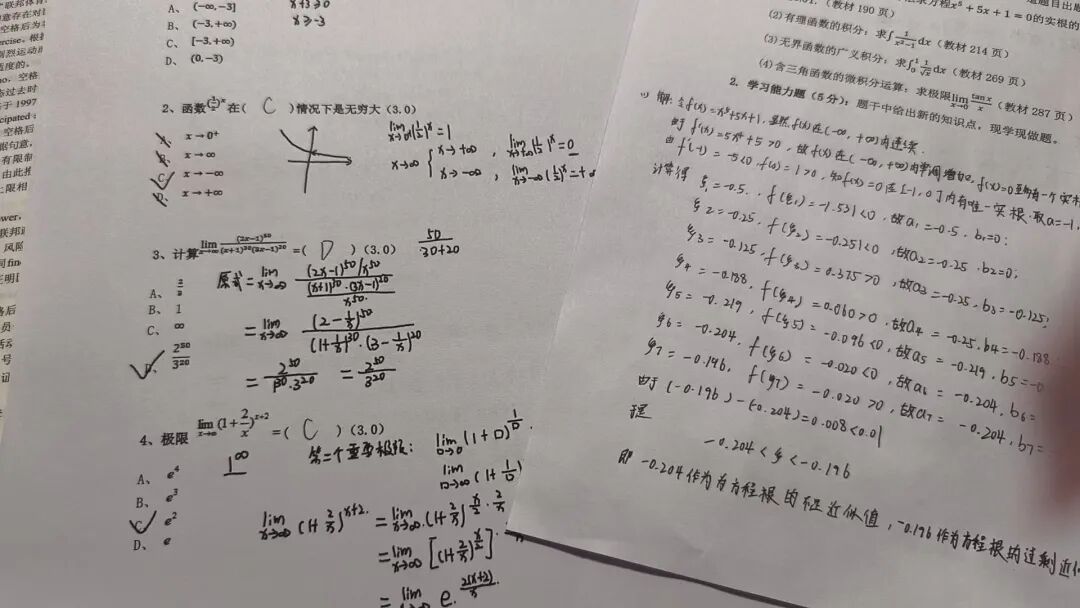 A、 (-∞,-3]
x+3≥0
B、 (-3,+∞)
x≥-3
C、 [-3,+∞)
D、 (0,-3)
2、函数(1/2)^x在( C )情况下是无穷大(3.0)
A、 x→0⁺
B、 x→∞
C、 x→-∞
D、 x→+∞
lim x→0 (1/2)^x=1
x→∞ { x→+∞ , lim x→+∞ (1/2)^x=0
x→-∞ , lim x→-∞ (1/2)^x=+∞
3、计算lim x→∞ (2x-1)^50/(x+1)^30(3x-1)^20 =( D )(3.0) 50/30+20
A、
B、 1
C、 ∞
D、 2^50/3^20
原式=lim x→∞ (2x-1)^50/x^50 / (x+1)^30·(3x-1)^20/x^50
=lim x→∞ (2-1/x)^50/(1+1/x)^30·(3-1/x)^20
=2^50/1^30·3^20 =2^50/3^20
4、极限 lim x→∞ (1+2/x)^x+2 =( C )(3.0)
A、 e⁴
B、 e³
C、 e²
D、 e
1^∞
第二个重要极限: lim □→0 (1+□)^1/□
lim □→∞ (1+1/□)
lim x→∞ (1+2/x)^x+2 =lim x→∞ (1+2/x)^x/2·2/x
=lim x→∞ [(1+2/x)^x/2]
=lim e^2(x+2)/x
求方程x⁵+5x+1=0的实根的
(教材 190 页)
(2)有理函数的积分:求∫1/x²-1 dx(教材 214 页)
(3)无界函数的广义积分:求∫₀¹ 1/√x dx(教材 269 页)
(4)含三角函数的微积分运算:求极限lim x→0 tanx/x(教材 287 页)
2. 学习能力题(5 分):题干中给出新的知识点,现学现做题。
1) 解:令f(x)=x⁵+5x+1,显然f(x)在(-∞,+∞)内连续.
由于f'(x)=5x⁴+5>0,故f(x)在(-∞,+∞)内单调增加,f(x)=0至多有一个实根
由f(-1)=-5<0,f(0)=1>0,知f(x)=0在[-1,0]内有唯一实根.取a=-1,
计算得 ξ1=-0.5. f(ξ1)=-1.531<0,故a1=-0.5,b1=0;
ξ2=-0.25, f(ξ2)=-0.251<0,故a2=-0.25.b2=0;
ξ3=-0.125,f(ξ3)=0.375>0,故a3=-0.25,b3=-0.125;
ξ4=-0.188,f(ξ4)=0.060>0,故a4=-0.25,b4=-0.188
ξ5=-0.219,f(ξ5)=-0.096<0,故a5=-0.219,b5=-0
ξ6=-0.204,f(ξ6)=-0.020<0,故a6=-0.204,b6=
ξ7=-0.196,f(ξ7)=-0.020>0,故a7=-0.204,b7=
由于(-0.196)-(-0.204)=0.008<0.01
程
-0.204<ξ<-0.196
即-0.204作为方程根的不足近似值,-0.196作为方程根的过剩近似